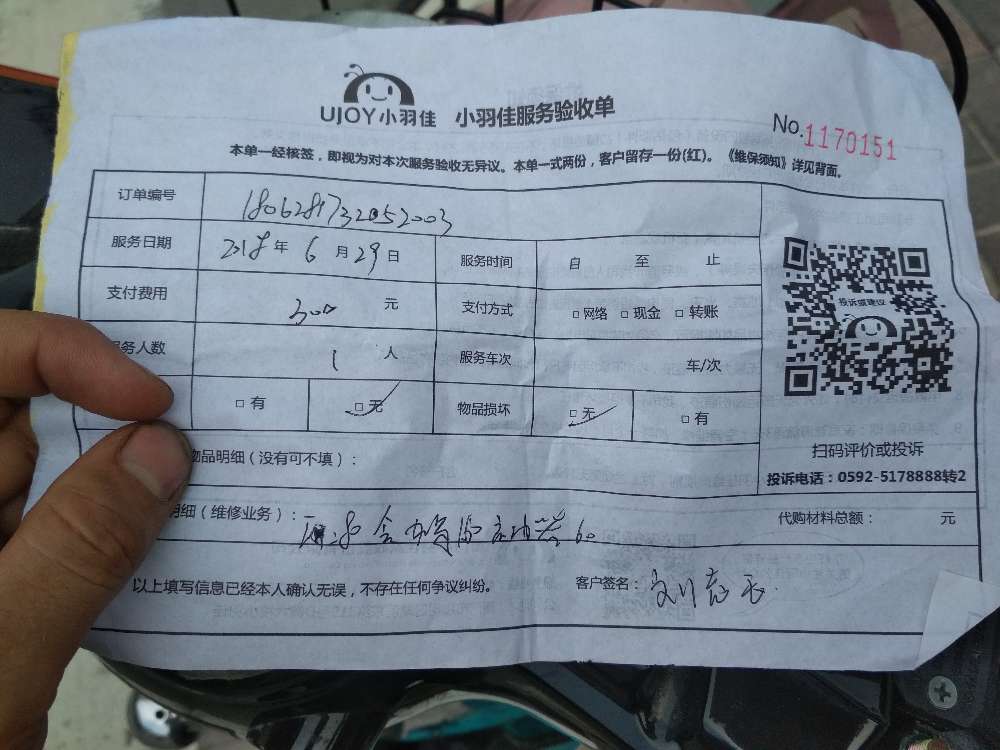 UJOY小羽佳 小羽佳服务验收单
No.1170151
本单一经核签，即视为对本次服务验收无异议。本单一式两份，客户留存一份(红)。《维保须知》详见背面。
订单编号 1806281732052003
服务日期 2018年 6 月 29 日 服务时间 自 至 止
支付费用 300 元 支付方式 □ 网络 □ 现金 □ 转账
务人数 1 人 服务车次 车/次
□ 有 □ 无 物品损坏 □ 无 □ 有
投诉或建议
扫码评价或投诉
投诉电话：0592-5178888转2
物品明细（没有可不填）：
明细（维修业务）： 60 代购材料总额： 元
以上填写信息已经本人确认无误，不存在任何争议纠纷。 客户签名：